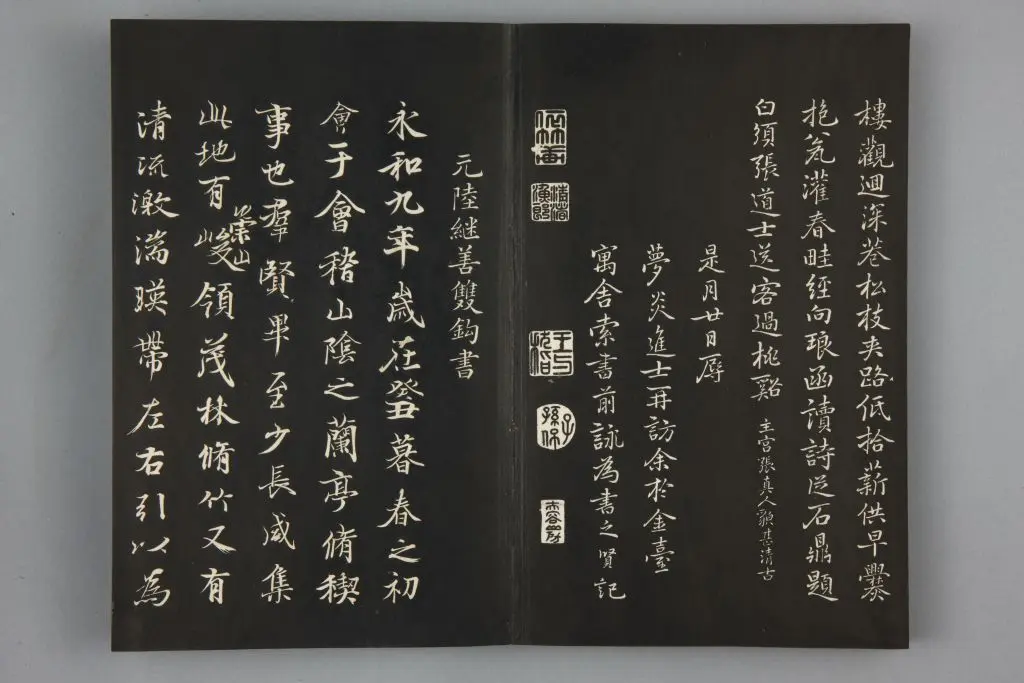 樓觀迴深巷松枝夾路低拾薪供早爨
抱瓮灌春畦經向琅函讀詩從石鼎題
白須張道士送客過桃谿
主宮張真人頗甚清古
是月廿日辱
夢炎進士再訪余於金臺
寓舍索書前詠為書之賢記
子孫保
元陸继善雙鈎書
永和九年歲在癸丑暮春之初
會于會稽山陰之蘭亭脩稧
事也羣賢畢至少長咸集
此地有崇山峻領茂林脩竹又有
清流激湍暎帶左右引以為